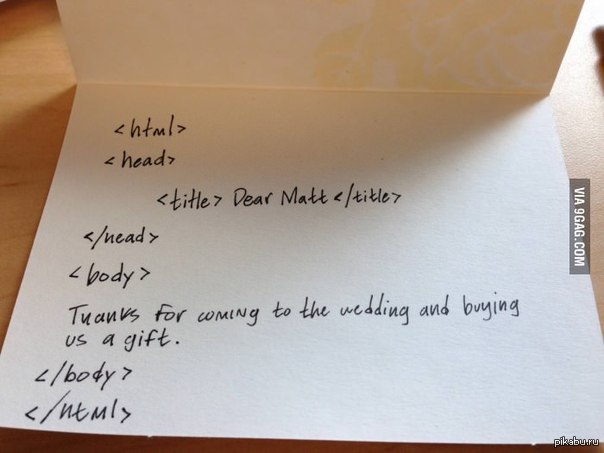 <html>
<head>
<title> Dear Matt </title>
</head>
<body>
Thanks for coming to the wedding and buying
us a gift.
</body>
</html>
VIA 9GAG.COM
pikabu.ru